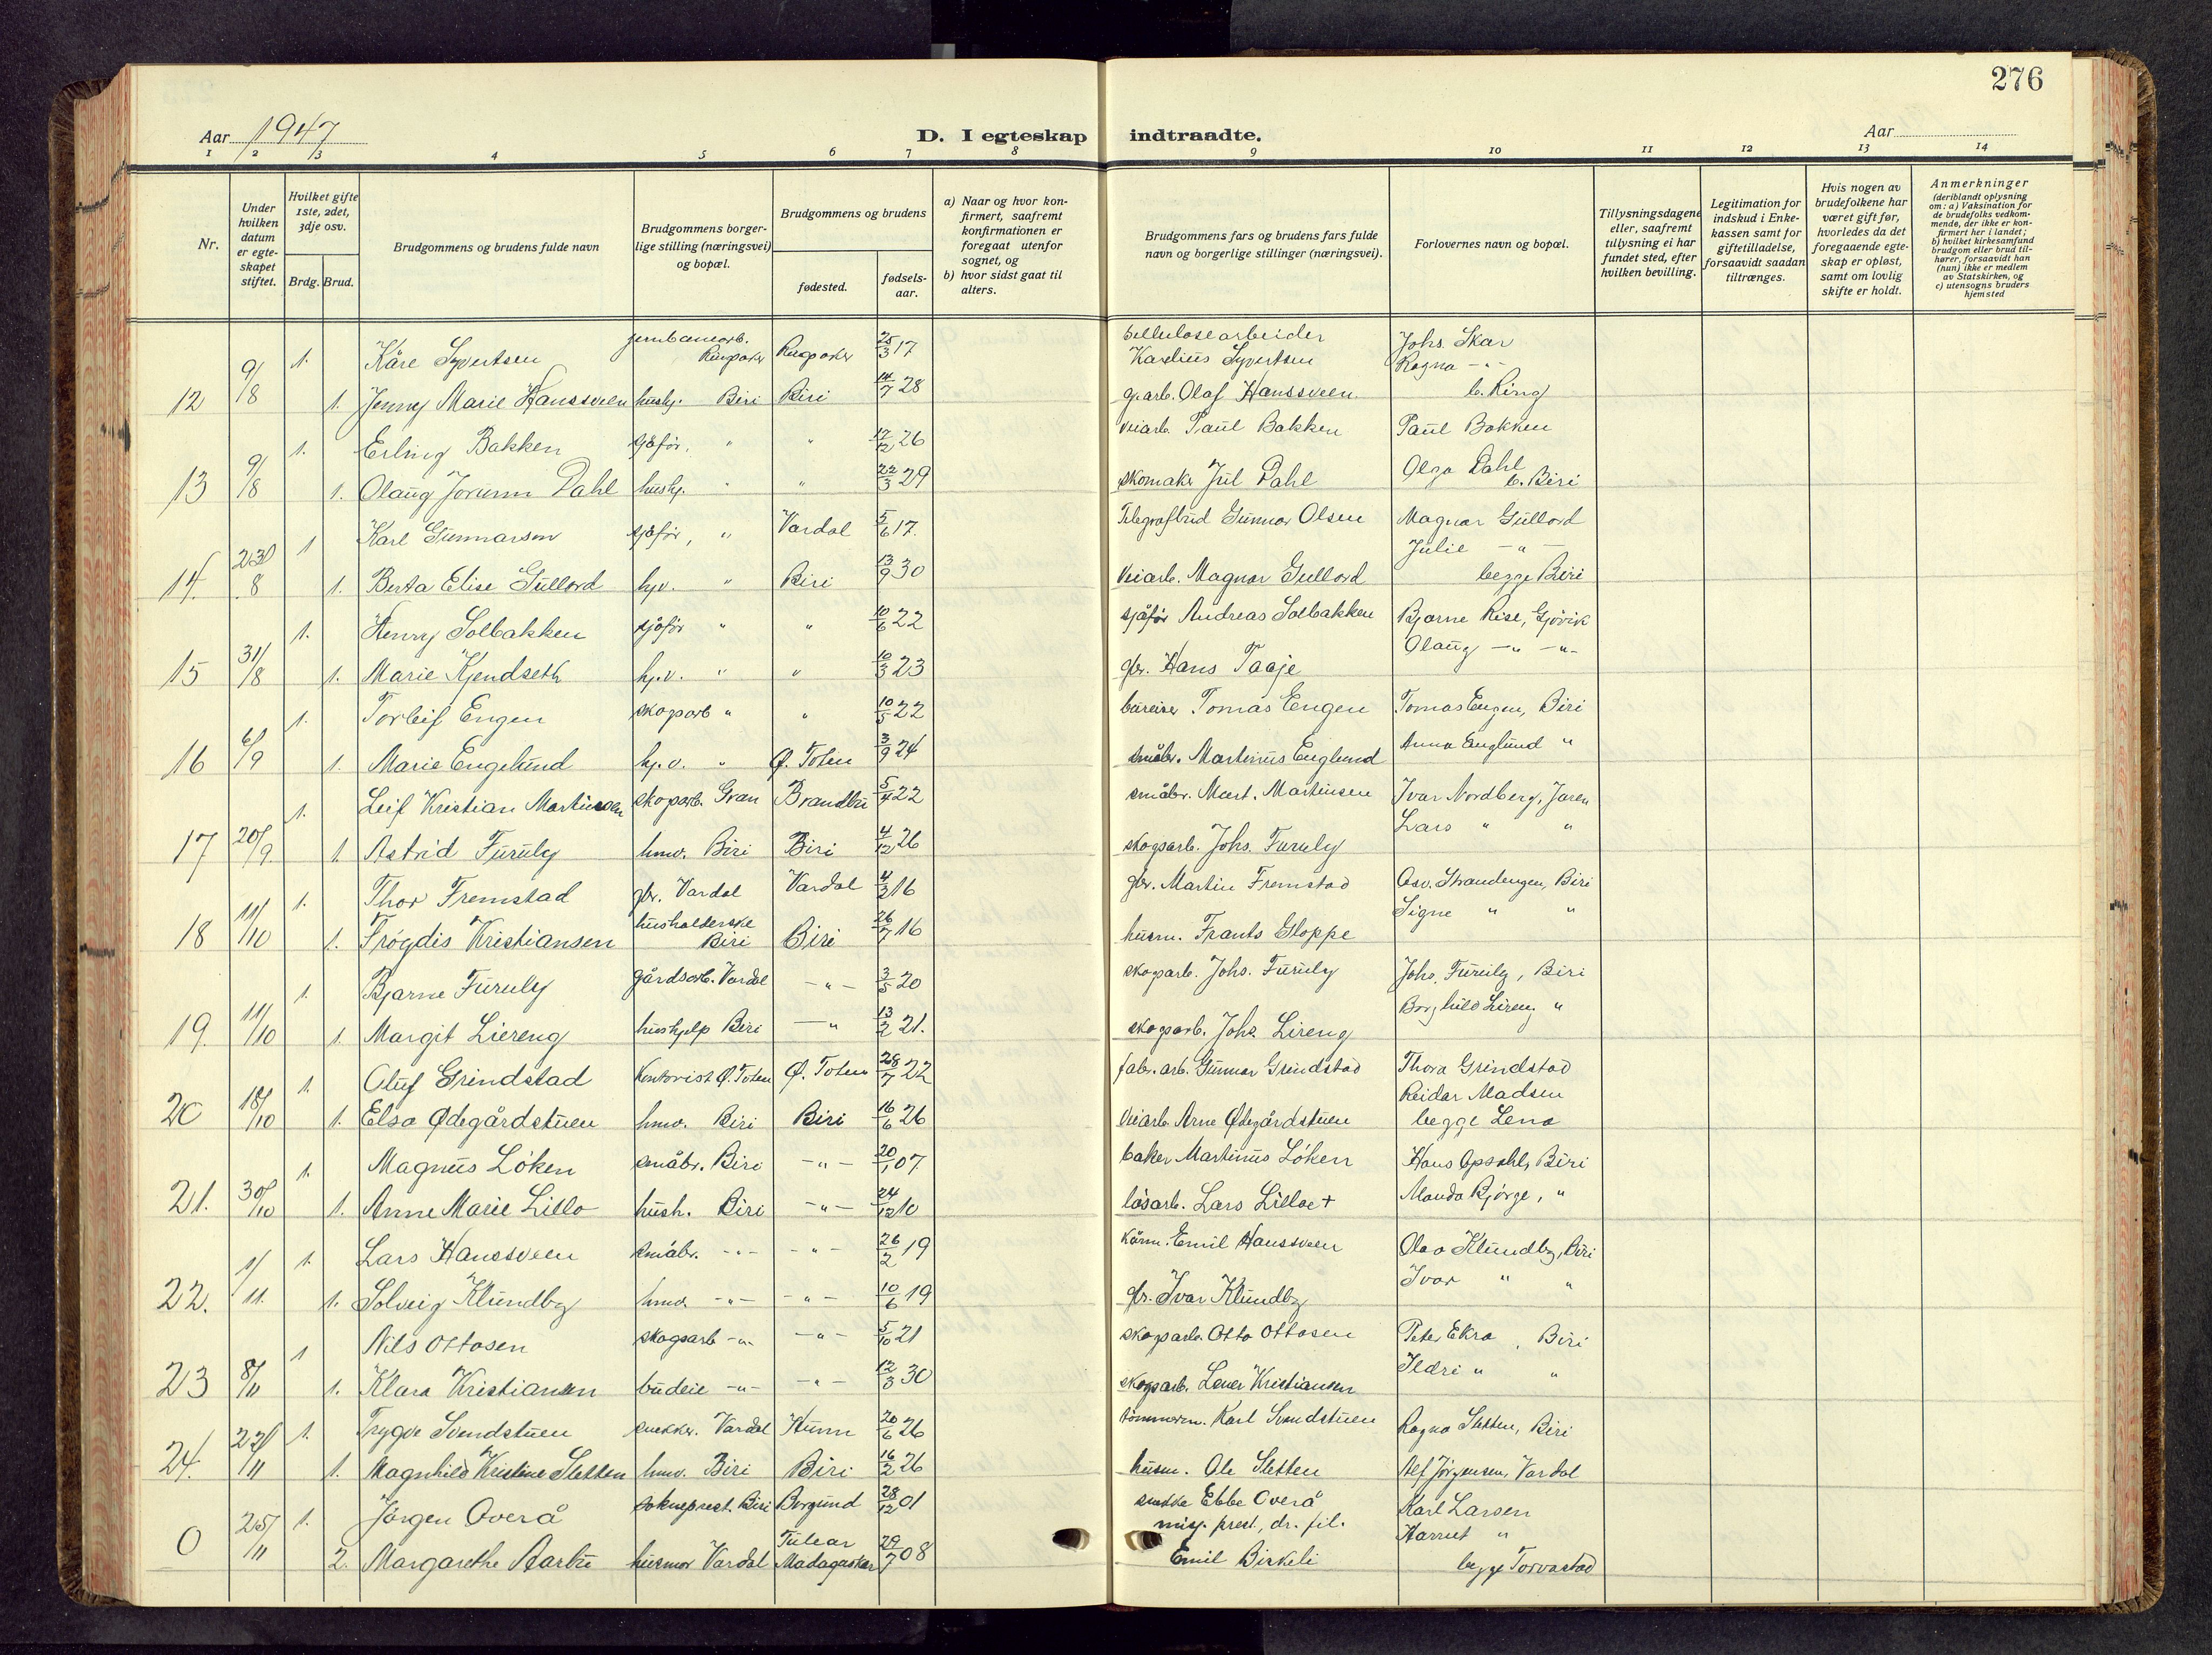 276
Aar 1947
D. I egteskap indtraadte.
Aar
1 2 3 4 5 6 7 8 9 10 11 12 13 14
Nr.
Under hvilken datum er egteskapet stiftet.
Hvilket gifte 1ste, 2det, 3dje osv.
Brdg. Brud.
Brudgommens og brudens fulde navn
Brudgommens borgerlige stilling (næringsvei) og bopæl.
Brudgommens og brudens
fødested.
fødselsaar.
a) Naar og hvor konfirmert, saafremt konfirmationen er foregaat utenfor sognet, og
b) hvor sidst gaat til alters.
Brudgommens fars og brudens fars fulde navn og borgerlige stillinger (næringsvei).
Forlovernes navn og bopæl.
Tillysningsdagene eller, saafremt tillysning ei har fundet sted, efter hvilken bevilling.
Legitimation for indskud i Enkekassen samt for giftetilladelse, forsaavidt saadan tiltrænges.
Hvis nogen av brudefolkene har været gift før, hvorledes da det foregaaende egteskap er opløst, samt om lovlig skifte er holdt.
Anmerkninger (deriblandt oplysning om: a) Vaksination for de brudefolks vedkommende, der ikke er konfirmert her i landet; b) hvilket kirkesamfund brudgom eller brud tilhører, forsaavidt han (hun) ikke er medlem av Statskirken, og c) utensogns bruders hjemsted
12 9/8 1. Kåre Syvertsen jernbanearb. Ringsaker Ringsaker 25/3 17 Cellulosearbeider Karelius Syvertsen Johs. Skar
Ragna -"-
1. Jenny Marie Hanssveen hushj. Biri Biri 14/7 28 g.arb. Olaf Hanssveen b. Ring
13 9/8 1. Erling Bakken sjåfør, " " 12/12 26 veiarb. Paul Bakken Paul Bakken
1. Olaug Jorunn Dahl hushj. " " 22/3 29 skomaker Jul Dahl Olga Dahl b. Biri
14. 23/8 1 Karl Gunnarsen sjåfør, " Vardal 5/6 17. Telegrafbud Gunnar Olsen Magnar Gullord
Julie -"-
1. Berta Elise Gullord hjv. " Biri 13/9 30 Veiarb. Magnar Gullord begge Biri
15 31/8 1. Henry Solbakken sjåfør " " 10/6 22 sjåfør Andreas Solbakken Bjarne Rise, Gjøvik
1. Marie Kjendseth hj.v. " " 10/3 23 gbr. Hans Taaje Olaug -"- -"-
16 6/9 1. Torleif Engen skogarb " " 10/5 22 bureiser Tomas Engen Tomas Engen, Biri
1. Marie Engelund hj.v. " Ø. Toten 3/9 24 småbr. Martinius Englund Anna Englund "
17 20/9. 1. Leif Kristian Martinsen skogarb. Gran Brandbu 5/4 22 småbr. Mart. Martinsen Ivar Nordberg, Jaren
1. Astrid Furuly hmv. Biri Biri 4/12 26 skogsarb. Johs. Furuly Lars " "
18 11/10 1. Thor Fremstad gbr. Vardal Vardal 4/3 16 gbr. Martin Fremstad Osv. Strandengen, Biri
1. Frøydis Kristiansen husholderske Biri Biri 26/7 16 husm. Frants Gloppe Signe " "
19. 11/10 1. Bjarne Furuly gårdsarb. Vardal -"- 3/5 20 skogsarb. Johs. Furuly Johs. Furuly, Biri
1. Margit Liereng hushjelp Biri -"- 13/2 21. skogsarb. Johs. Lireng Borghild Lireng "
20 18/10 1. Oluf Grindstad Kontorist Ø. Toten Ø. Toten 28/7 22 fabr.arb. Gunnar Grindstad Thora Grindstad
Reidar Madsen
1. Elsa Ødegårdstuen hmv. Biri Biri 16/6 26 Veiarb. Arne Ødegårdstuen begge Lena
21. 30/10 1. Magnus Løken småbr. Biri -"- 20/1 07 baker Martinus Løken Hans Opsahl, Biri
1. Anne Marie Lillo hush. Biri -"- 24/12 10 løsarb. Lars Lilloe + Manda Bjørge, "
22. 1/11. 1. Lars Hanssveen småbr. -"- -"- 26/2 19 Kårm. Emil Hanssveen Olav Klundby, Biri
1. Solveig Klundby hmv. -"- -"- 10/6 19 gbr. Ivar Klundby Ivar " "
23 8/11 1 Nils Ottosen skogsarb -"- -"- 5/10 21 skogsarb. Otto Ottosen Peter Ekra, Biri
1. Klara Kristiansen budeie -"- -"- 12/3 30 skogsarb. Kristiansen Ildri " "
24. 22/11 1. Trygve Svendstuen snekker. Vardal Hunn 20/6 26 tømmerm. Karl Svendstuen Ragna Sletten, Biri
1. Magnhild Kristine Sletten hmv. Biri Biri 16/2 26 husm. Ole Sletten Alf Jørgensen, Vardal
0 25/11 1. Jørgen Overå sokneprest. Biri Borgund 28/12 01 Ebbe Overå Karl Larsen
Harriet "
2. Margarethe Aarbu husmor Vardal Tulear Madagaskar 29/7 08 misj. prest, dr. fil. Emil Birkeli begge Torvastad